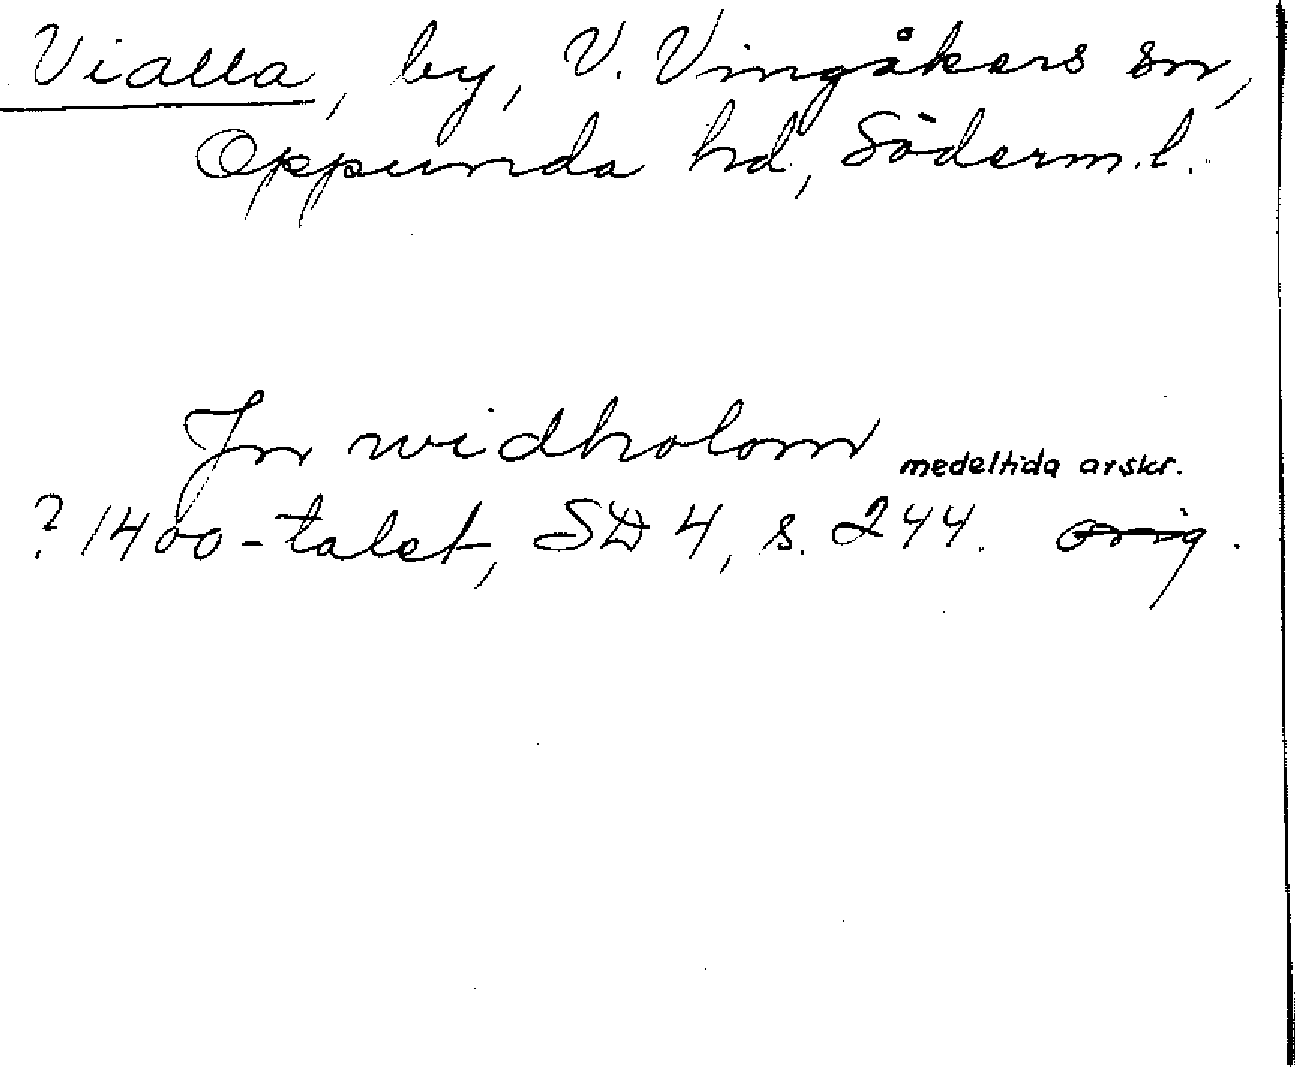 Vialla, by, V. Vingåkers sn,
Oppunda hd, Söderm.l.
Jn widholom medeltida avskr.
? 1400-talet, SD 4, s. 244. orig.